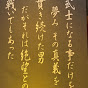 武士になる事だけを
夢み、その真義を
貫き続けた男
だがそれは絶望との
戦いでしあった